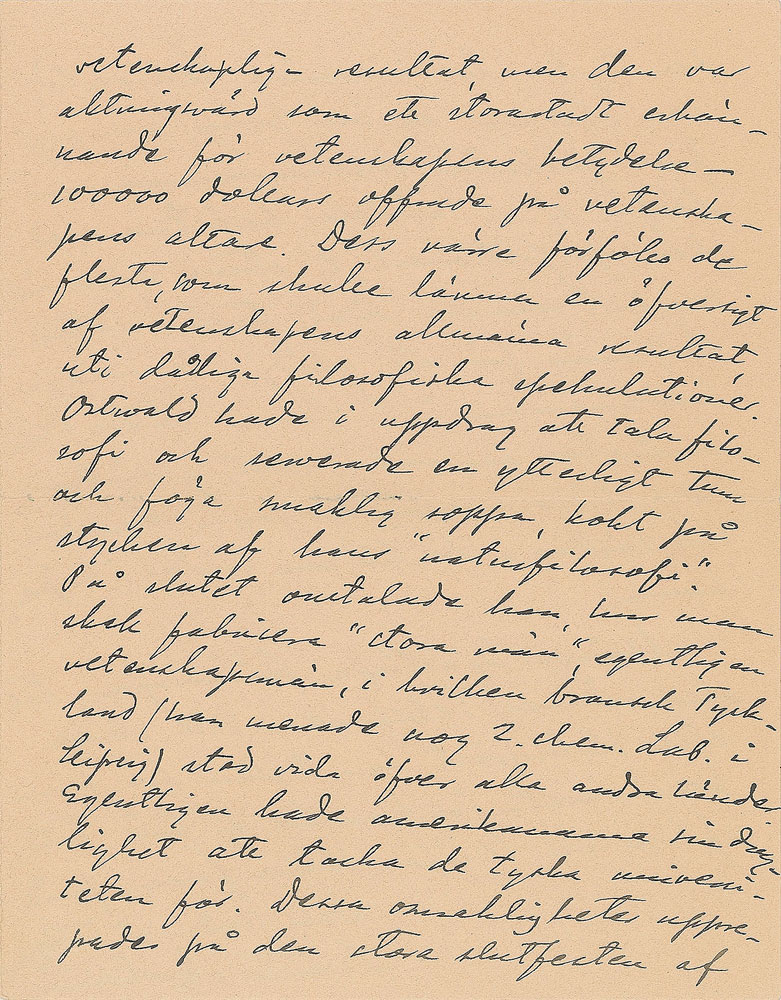 vetenskapliga resultat, men den var
aktningsvärd som ett storartadt erkän-
nande för vetenskapens betydelse –
100000 dollars offrade på vetenska-
pens altare. Dess värre förföllo de
flesta, som skulle lämna en öfversigt
af vetenskapens allmänna resultat,
uti dåliga filosofiska spekulationer.
Ostwald hade i uppdrag att tala filo-
sofi och serverade en ytterligt tunn
och föga smaklig soppa, kokt på
stycken af hans "naturfilosofi".
På slutet omtalade han, hur man
skal fabricera "stora män", egentligen
vetenskapsmän, i hvilken bransch Tysk-
land (han menade nog 2. chem. Lab. i
Leipzig) stod vida öfver alla andra länder.
Egentligen hade amerikanarne sin dug-
lighet att tacka de tyska universi-
teten för. Dessa osmakligheter uppre-
pades på den stora slutfesten af